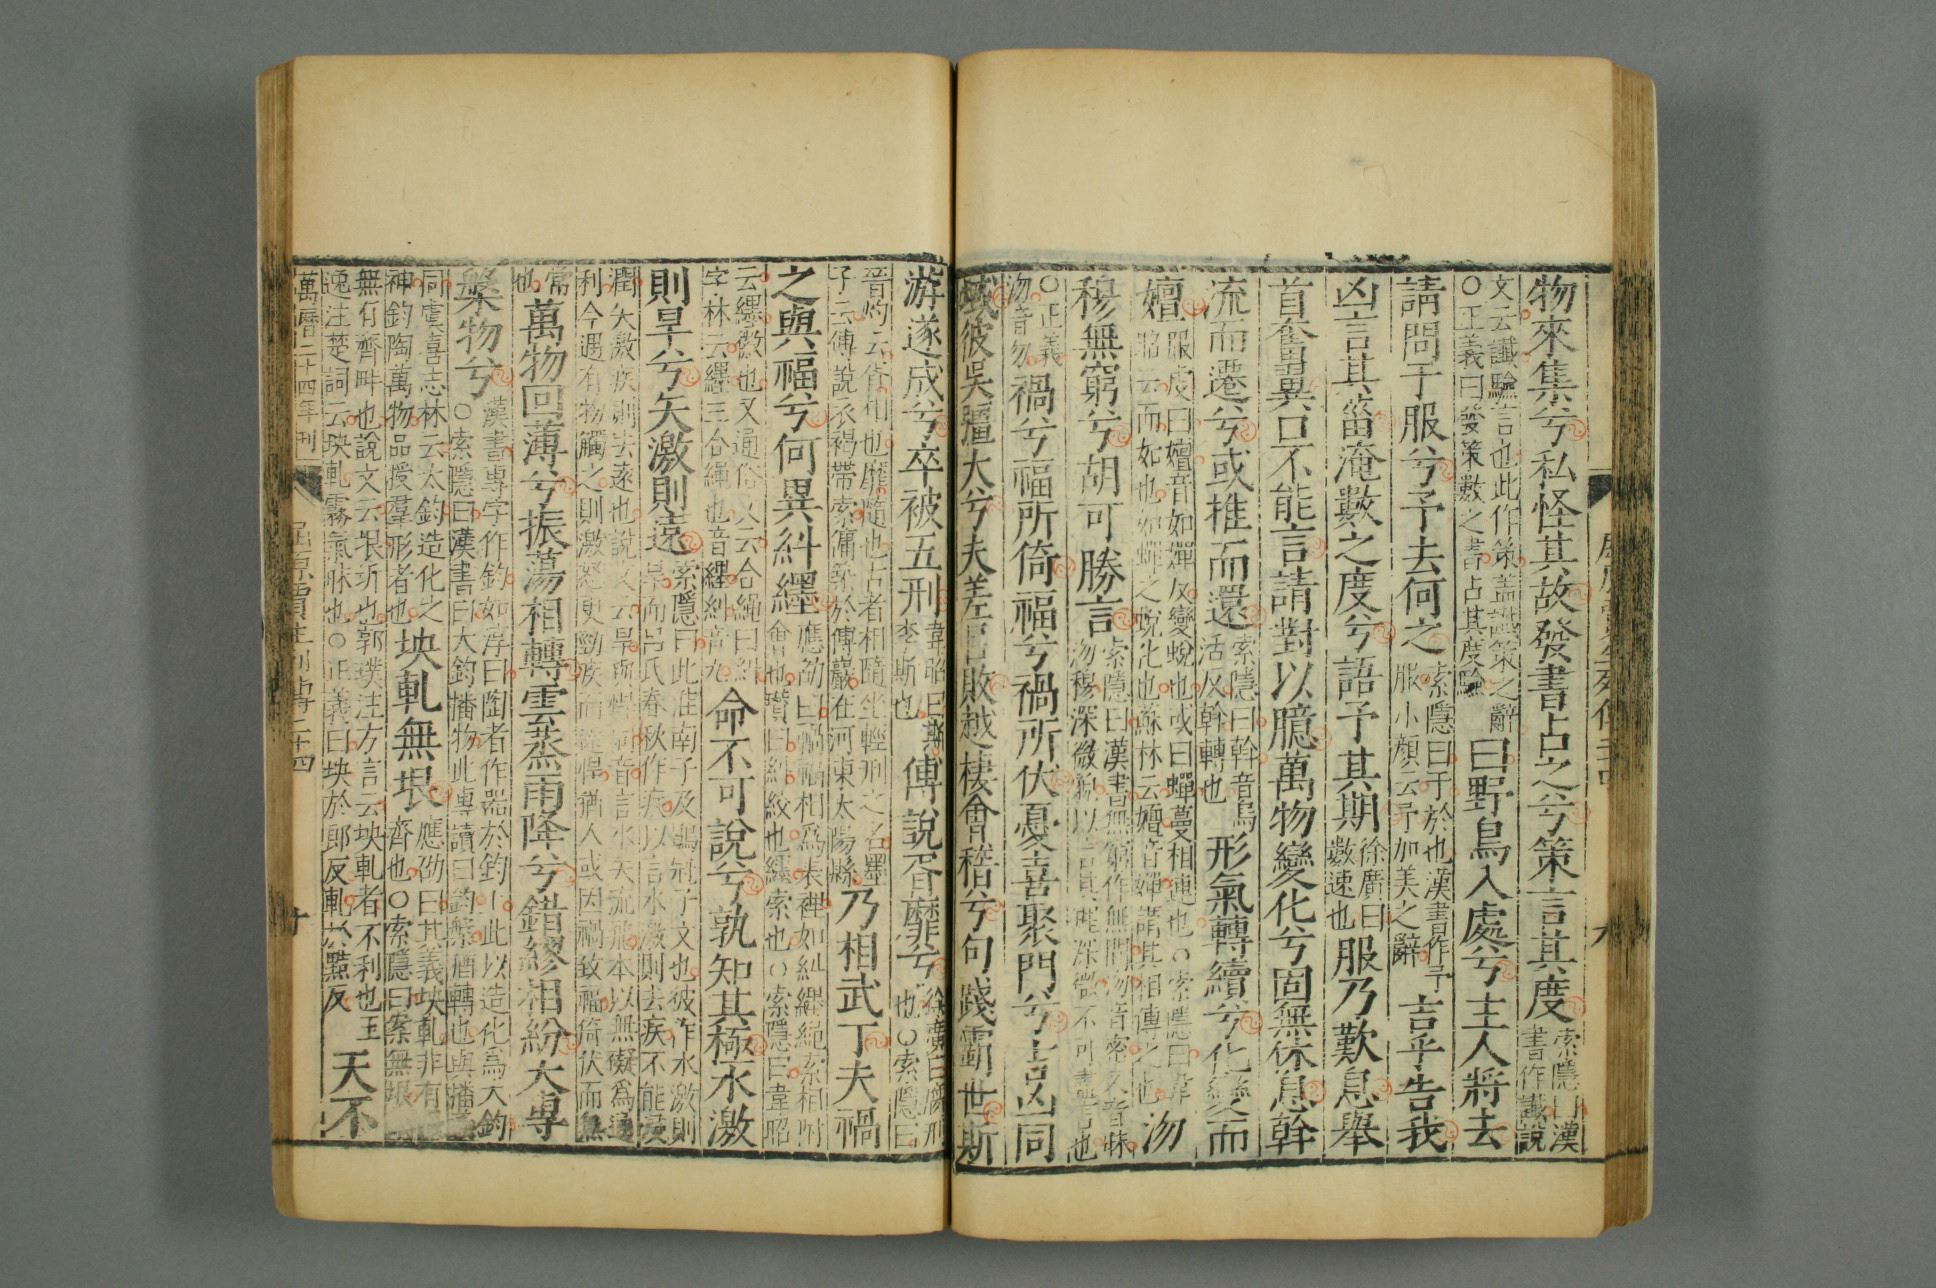 物來集兮私怪其故發書占之兮策言其度索隱曰漢書作讖說
文云讖驗言也此作策蓋讖策之辭○正義曰發策數之書占其度驗曰野鳥入處兮主人將去
請問于服兮予去何之索隱曰于於也漢書作予服小顏云予加美之辭言乎告我
凶言其菑淹數之度兮語予其期徐廣曰數速也服乃歎息舉
首奮翼口不能言請對以臆萬物變化兮固無休息斡
流而遷兮或推而還索隱曰斡音烏活反斡轉也形氣轉續兮化變而
嬗服虔曰嬗音如蟬反變蛻也或曰蟬蔓相連也○索隱曰韋昭云而如也如蟬之蛻化也蘇林云嬗音蟬謂其相傳之也沕
穆無窮兮胡可勝言索隱曰漢書無窮作無間沕音密又音昧沕穆深微貌以言其理深微不可盡言也
○正義沕音勿禍兮福所倚福兮禍所伏憂喜聚門兮吉凶同
域彼吳彊大兮夫差以敗越棲會稽兮句踐霸世斯
游遂成兮卒被五刑韋昭曰斯李斯也傅說胥靡兮徐廣曰腐刑也○索隱曰
晉灼云胥相也靡隨也古者相隨坐輕刑之名墨子云傅說衣褐帶索傭築於傅巖在河東太陽縣乃相武丁夫禍
之與福兮何異糾纆應劭曰禍福相爲表裡如糾纆繩索相附會也瓚曰糾絞也纆索也○索隱曰韋昭
云纆徽也又通俗文云合繩曰糾字林云纆三合繩也音纆糾音九命不可說兮孰知其極水激
則旱兮矢激則遠索隱曰此淮南子及鶡冠子文也彼作水激則
萬物回薄兮振蕩相轉雲蒸雨降兮錯繆相紛大專
槃物兮漢書專字作鈞如淳曰陶者作器於鈞上此以造化爲大鈞○索隱曰漢書曰大鈞播物此專讀曰鈞槃猶轉也與播
同虞喜志林云大鈞造化之神鈞陶萬物品授羣形者也坱軋無垠應劭曰其義坱軋非有齊也○索隱曰案無垠
無有齊畔也說文云垠圻也郭璞注方言云坱軋者不利也王逸注楚詞云坱軋霧氣昧也○正義曰坱於郎反軋於點反天不
萬曆二十四年刊 屈原賈生列傳二十四 十